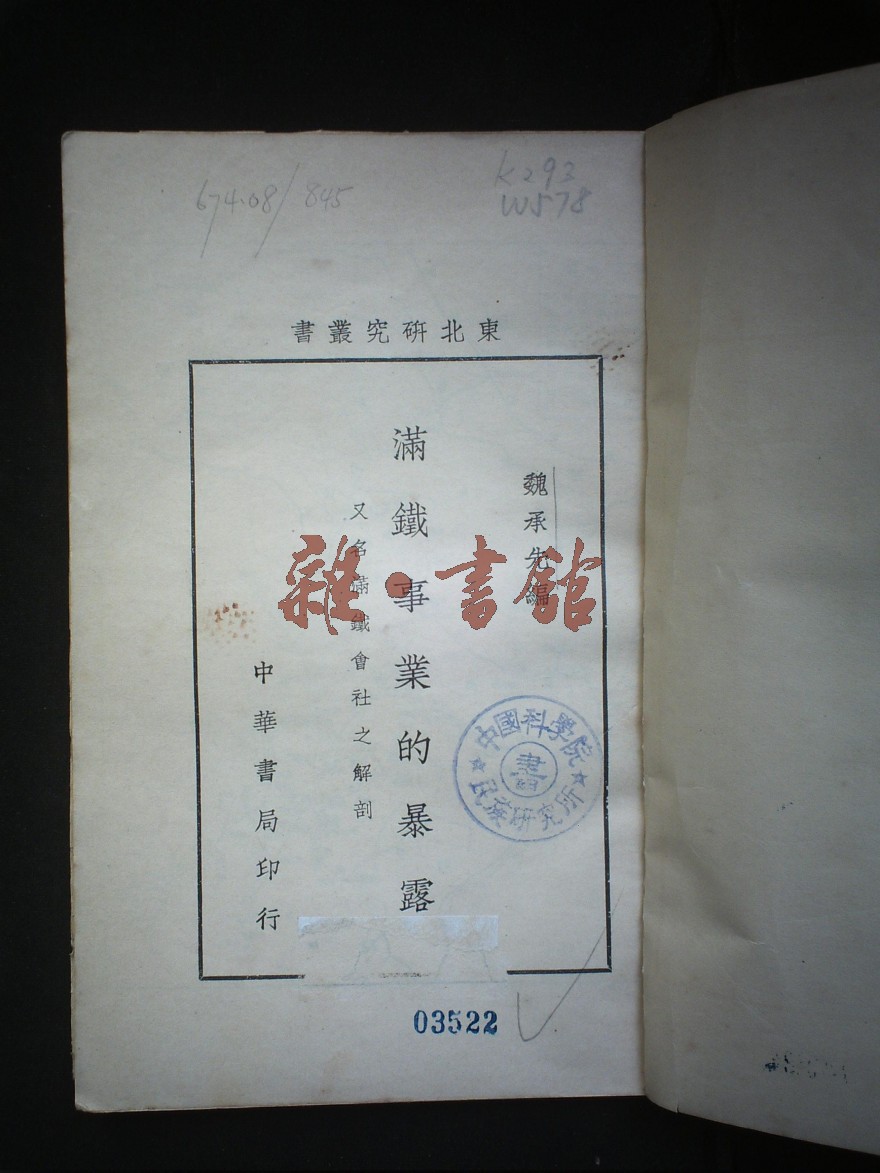 674.08/845
K293
W578
東北研究叢書
魏承先編
滿鐵事業的暴露
又名滿鐵會社之解剖
中華書局印行
雜·書館
中國科學院
民族研究所
書
03522